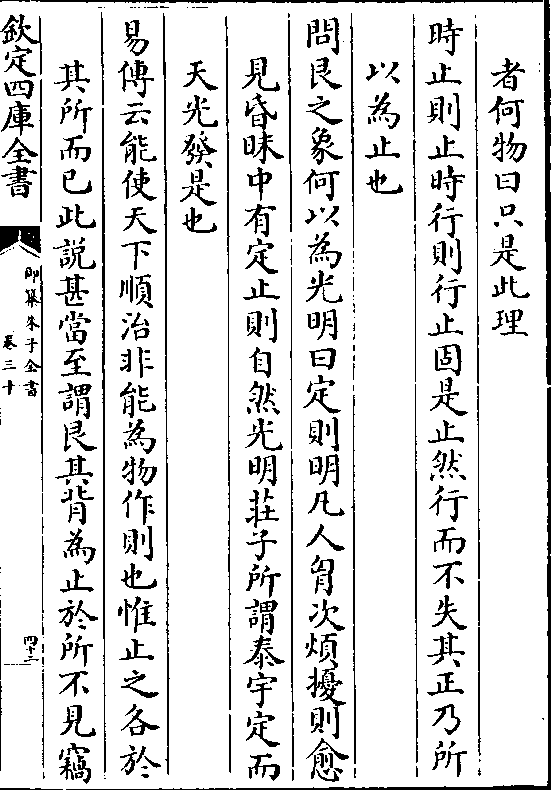 者何物曰只是此理
時止則止時行則行止固是止然行而不失其正乃所
以為止也
問艮之象何以為光明曰定則明凡人胷次煩擾則愈
見昏昧中有定止則自然光明莊子所謂泰宇定而
天光發是也
易傳云能使天下順治非能為物作則也惟止之各於
其所而已此說甚當至謂艮其背為止於所不見竊
欽定四庫全書
御纂朱子全書
卷三十
四十二